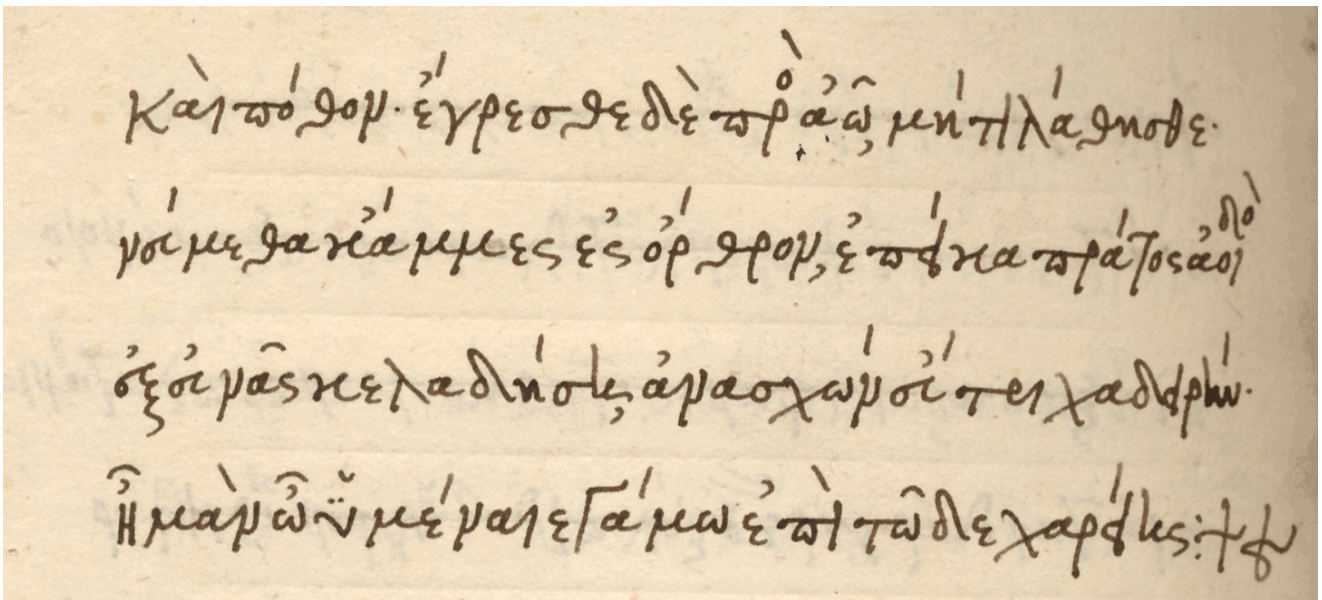 Καὶ πόθον· ἔγρεσθε δὲ πρὸ ἀῶ, μή τι λάθησθε·
νεύμεθα κἄμμες ἐς ὄρθρον, ἐπεί κα πράτος ἀοιδὸ
ἐξ εὐνᾶς κελαδήση, ἀνασχών εὔτριχα δειρήν·
Ἦ μὰν ὦ ὑμέναιε γάμω ἐπὶ τῶδε χαρείης: